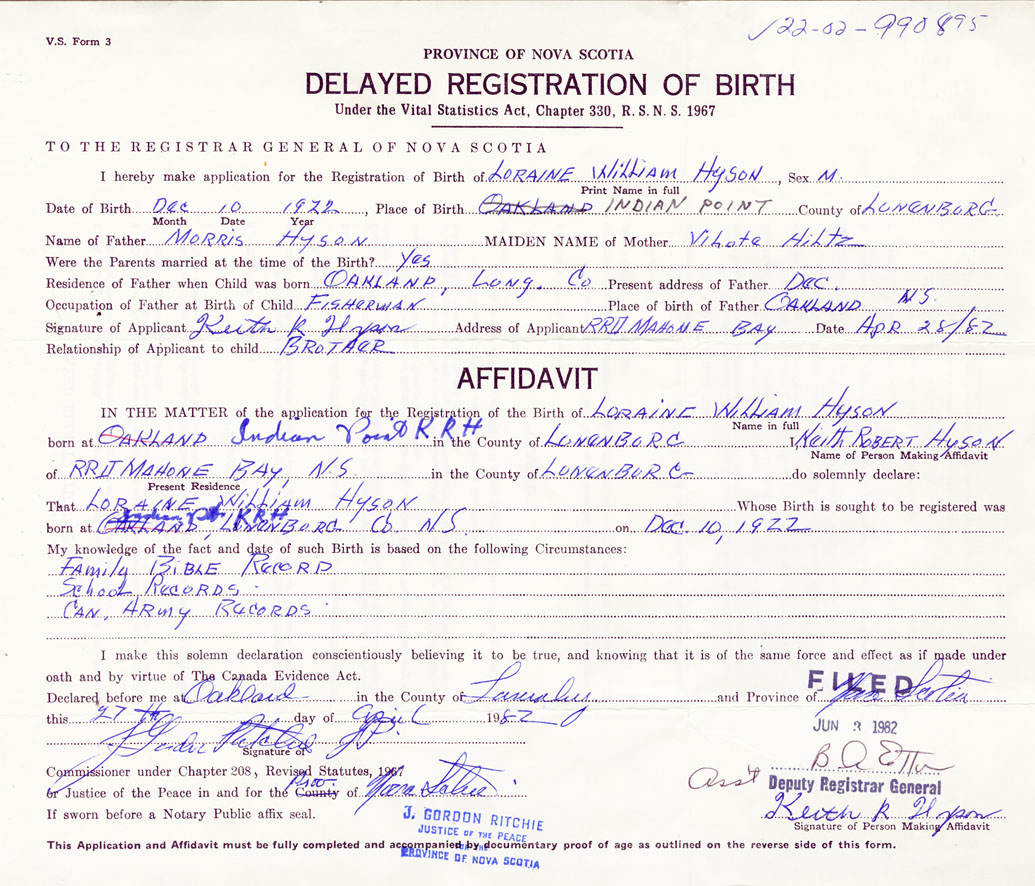 V.S. Form 3
122-02-990895
PROVINCE OF NOVA SCOTIA
DELAYED REGISTRATION OF BIRTH
Under the Vital Statistics Act, Chapter 330, R.S.N.S. 1967
TO THE REGISTRAR GENERAL OF NOVA SCOTIA
I hereby make application for the Registration of Birth of LORAINE WILLIAM HYSON, Sex M.
Print Name in full
Date of Birth DEC 10 1922, Place of Birth OAKLAND INDIAN POINT County of LUNENBURG
Month Date Year
Name of Father MORRIS HYSON MAIDEN NAME of Mother VIHOTE HILTZ
Were the Parents married at the time of the Birth? Yes
Residence of Father when Child was born OAKLAND, LUNG. Co Present address of Father DEC.
Occupation of Father at Birth of Child FISHERMAN Place of birth of Father OAKLAND N.S.
Signature of Applicant Keith R Hyson Address of Applicant RRII MAHONE BAY Date APR 28/82
Relationship of Applicant to child BROTHER
AFFIDAVIT
IN THE MATTER of the application for the Registration of the Birth of LORAINE WILLIAM HYSON
Name in full
born at OAKLAND Indian Point K.R.H in the County of LUNENBURG I, KEITH ROBERT HYSON
Name of Person Making Affidavit
of RRII MAHONE BAY, N.S. in the County of LUNENBURG do solemnly declare:
Present Residence
That LORAINE William HYSON Whose Birth is sought to be registered was
born at OAKLAND, Indian Pt. K.R.H LUNENBURG Co N.S. on DEC 10, 1922
My knowledge of the fact and date of such Birth is based on the following Circumstances:
FAMILY BIBLE RECORD
School RECORDS.
CAN, ARMY RECORDS.
I make this solemn declaration conscientiously believing it to be true, and knowing that it is of the same force and effect as if made under
oath and by virtue of The Canada Evidence Act.
Declared before me at Oakland in the County of Lunenburg and Province of Nova Scotia
FILED
this 27th day of April 1982
JUN 3 1982
J Gordon Ritchie J.P.
Signature of
Commissioner under Chapter 208, Revised Statutes, 1967
Asst Deputy Registrar General
or Justice of the Peace in and for the County Prov. of Nova Scotia
Keith R Hyson
If sworn before a Notary Public affix seal.
Signature of Person Making Affidavit
J. GORDON RITCHIE
JUSTICE OF THE PEACE
FOR THE
PROVINCE OF NOVA SCOTIA
This Application and Affidavit must be fully completed and accompanied by documentary proof of age as outlined on the reverse side of this form.